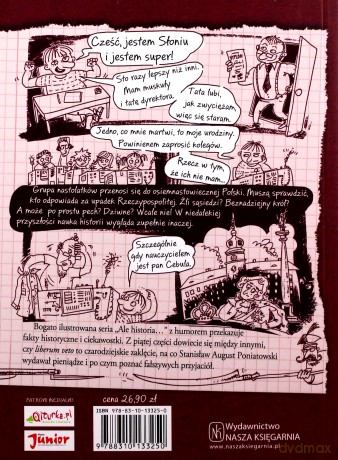 Cześć, jestem Słoniu
i jestem super!
Sto razy lepszy niż inni.
Mam muskuły
i tatę dyrektora.
Tata lubi,
jak zwyciężam,
więc się staram.
Jedno, co mnie martwi, to moje urodziny.
Powinienem zaprosić kolegów.
Rzecz w tym,
że ich nie mam.
Grupa nastolatków przenosi się do osiemnastowiecznej Polski. Muszą sprawdzić,
kto odpowiada za upadek Rzeczypospolitej. Źli sąsiedzi? Beznadziejny król?
A może po prostu pech? Dziwne? Wcale nie! W niedalekiej
przyszłości nauka historii wygląda zupełnie inaczej.
Szczególnie
gdy nauczycielem
jest pan Cebula.
Bogato ilustrowana seria „Ale historia…” z humorem przekazuje
fakty historyczne i ciekawostki. Z piątej części dowiecie się między innymi,
czy liberum veto to czarodziejskie zaklęcie, na co Stanisław August Poniatowski
wydawał pieniądze i po czym poznać fałszywych przyjaciół.
PATRONI MEDIALNI:
Qlturka.pl
Junior
cena 26,90 zł
ISBN 978-83-10-13325-0
9 788310 133250
Wydawnictwo
NASZA KSIĘGARNIA
www.naszaksiegarnia.pl
dvdmax